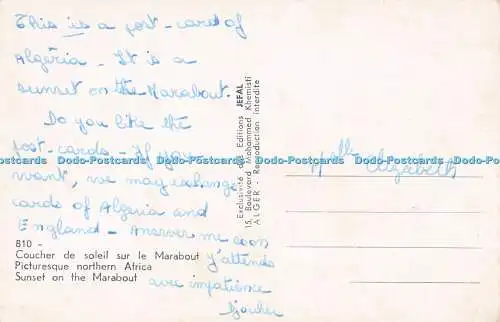 This is a post-card of
Algeria - It is a
sunset on the Marabout.
Do you like the
post-cards - If you
want, we may exchange
cards of Algeria and
England - Answer me soon
j'attends
avec impatience
810 -
Coucher de soleil sur le Marabout
Picturesque northern Africa
Sunset on the Marabout
Exclusivité des Editions JEFAL
15, Boulevard Mohammed Khemisti
ALGER - Reproduction interdite
Melle Elizabeth
Dodo-Postcards Dodo-Postcards Dodo-Postcards Dodo-Postcards Dodo-Postcards